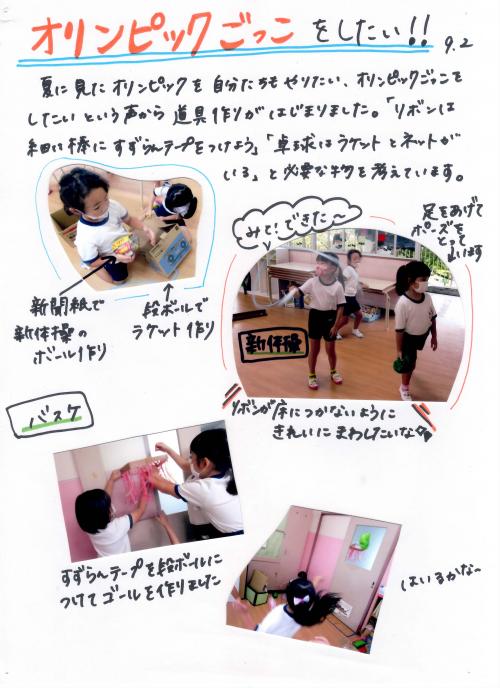 オリンピックごっこをしたい!! 9.2
夏に見たオリンピックを自分たちもやりたい、オリンピックごっこを
したいという声から道具作りがはじまりました。「リボンは
細い棒にすずらんテープをつけよう」「卓球はラケットとネットが
いる」と必要な物を考えています。
新聞紙で
新体操の
ボール作り
段ボールで
ラケット作り
みて!できた〜
足をあげて
ポーズを
とって
います
新体操
リボンが床につかないように
きれいにまわしたいな
バスケ
すずらんテープを段ボールに
つけてゴールを作りました
はいるかな〜